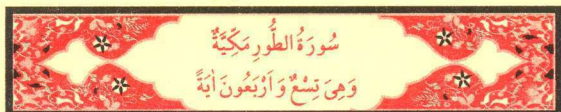 سُورَةُ الطُّورِ مَكِّيَّةٌ
وَهِىَ تِسْعٌ وَ اَرْبَعُونَ اٰيَةً